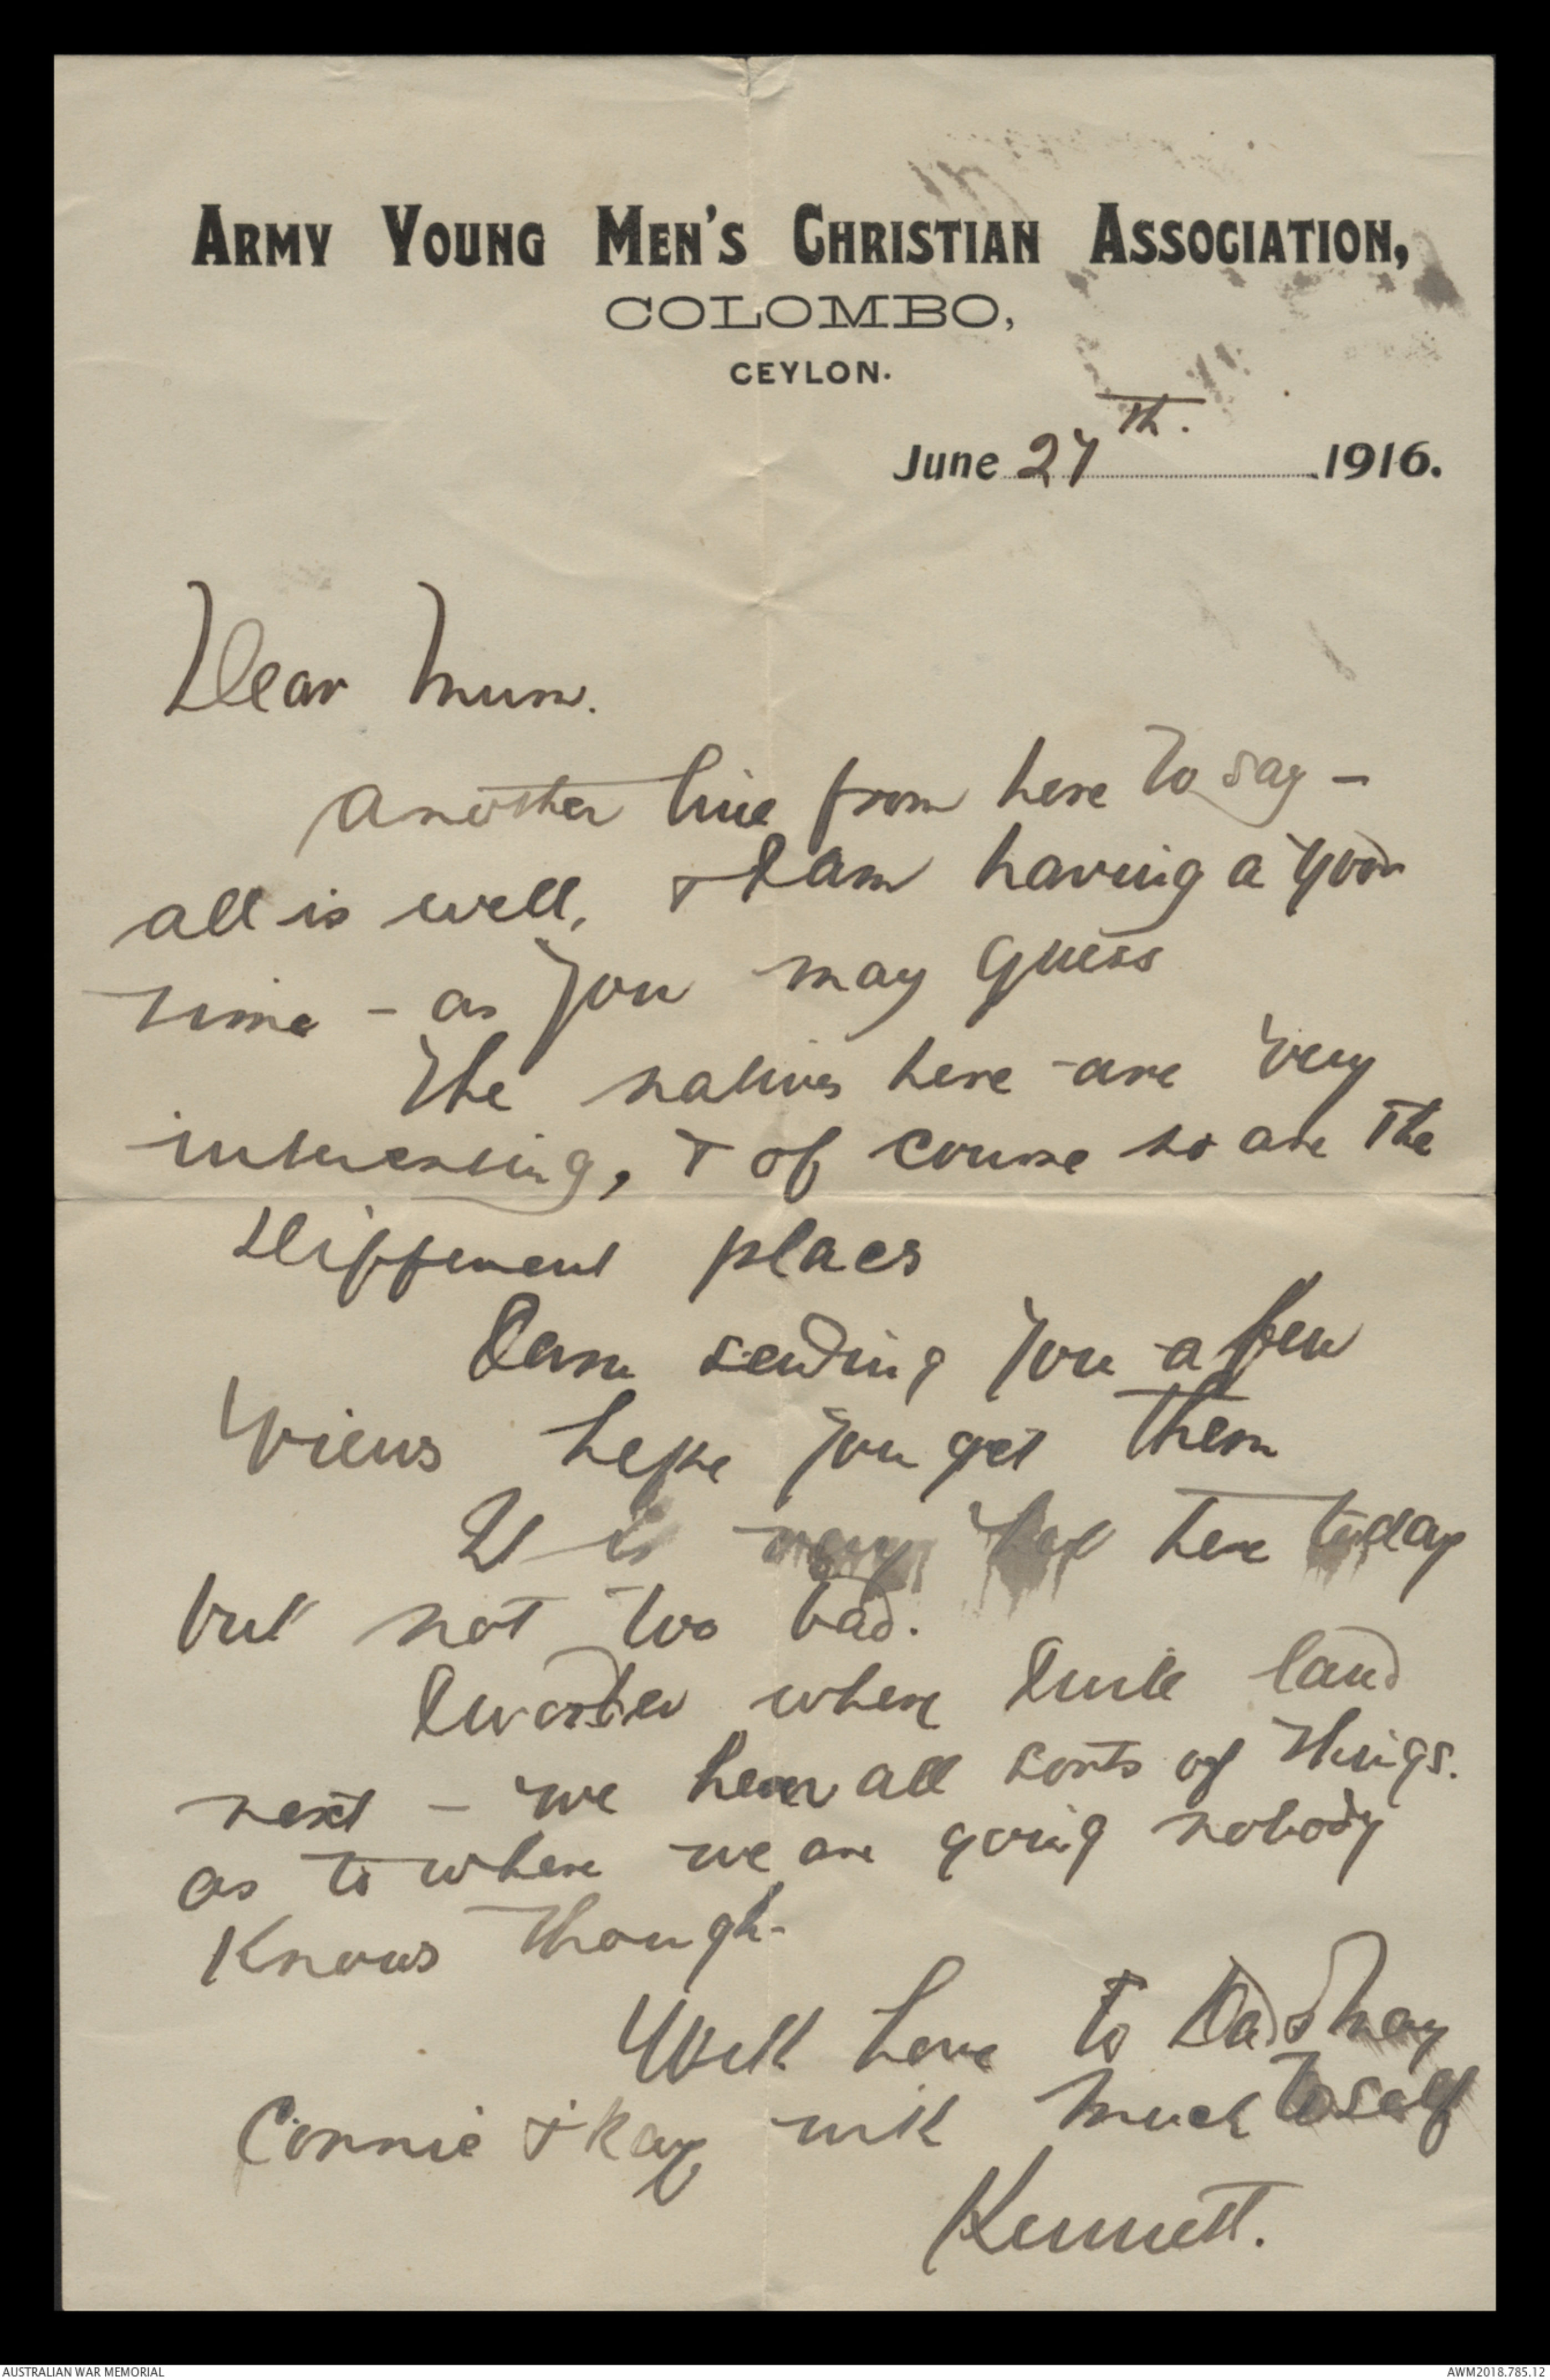 ARMY YOUNG MEN'S CHRISTIAN ASSOCIATION,
COLOMBO,
CEYLON.
June 27th. 1916.
Dear Mum.
Another line from here to say -
all is well, & I am having a good
time - as you may guess
The natives here are very
interesting, & of course so are the
different places
I am sending you a few
views hope you get them
It is very hot here today
but not too bad.
I wonder where I will land
next - we hear all sorts of things.
as to where we are going nobody
knows though.
With love to Dad & May
Connie & Ray with much to self
Kennett.
AUSTRALIAN WAR MEMORIAL
AWM2018.785.12